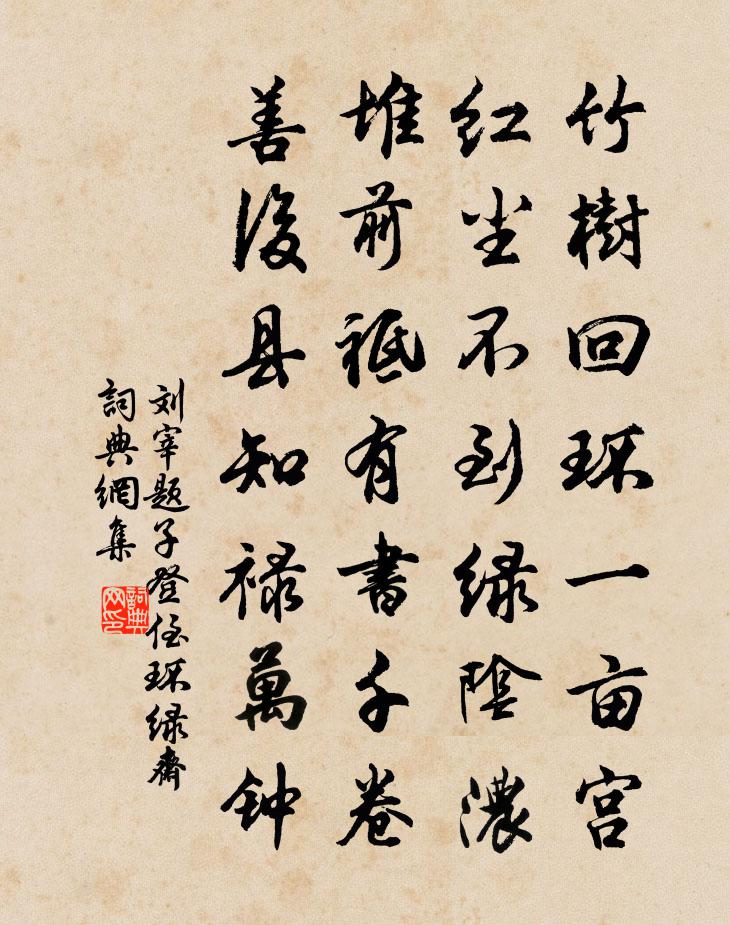 竹樹回环一亩宫
红尘不到绿阴濃
堆前祗有書千卷
善後县知禄萬钟
刘宰题子登侄环绿齋
詞典網集
詞典网印